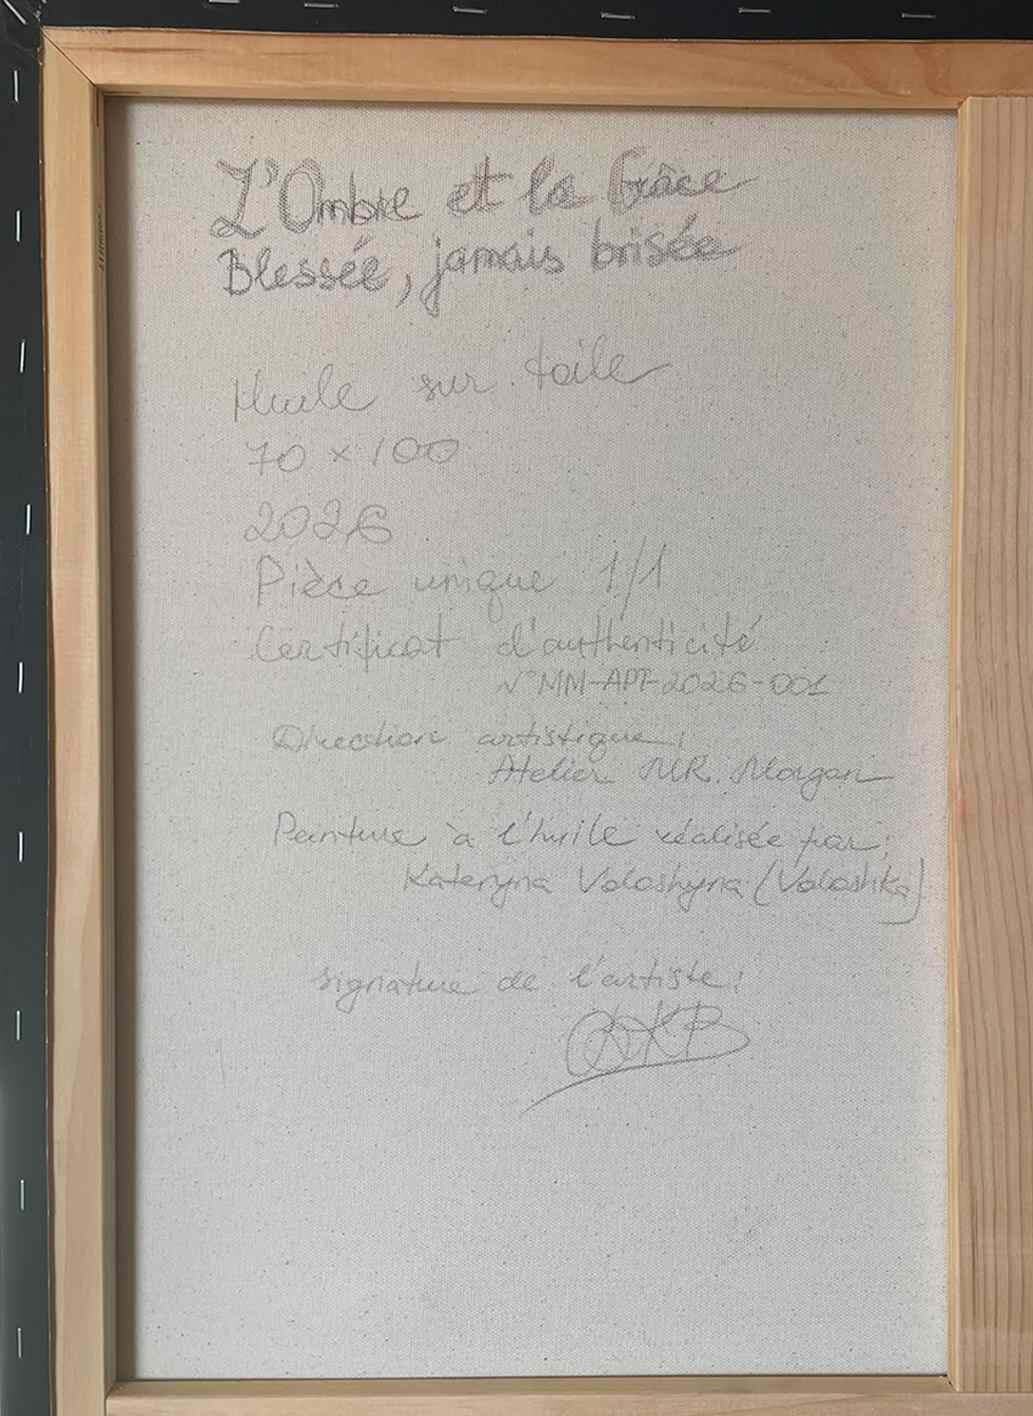 L'Ombre et la Grâce
Blessée, jamais brisée
Huile sur toile
70 × 100
2026
Pièce unique 1/1
Certificat d'authenticité
N°MM-APT-2026-001
Direction artistique:
Atelier MR. Morgan
Peinture à l'huile réalisée par:
Kateryna Voloshyna (Voloshka)
signature de l'artiste: